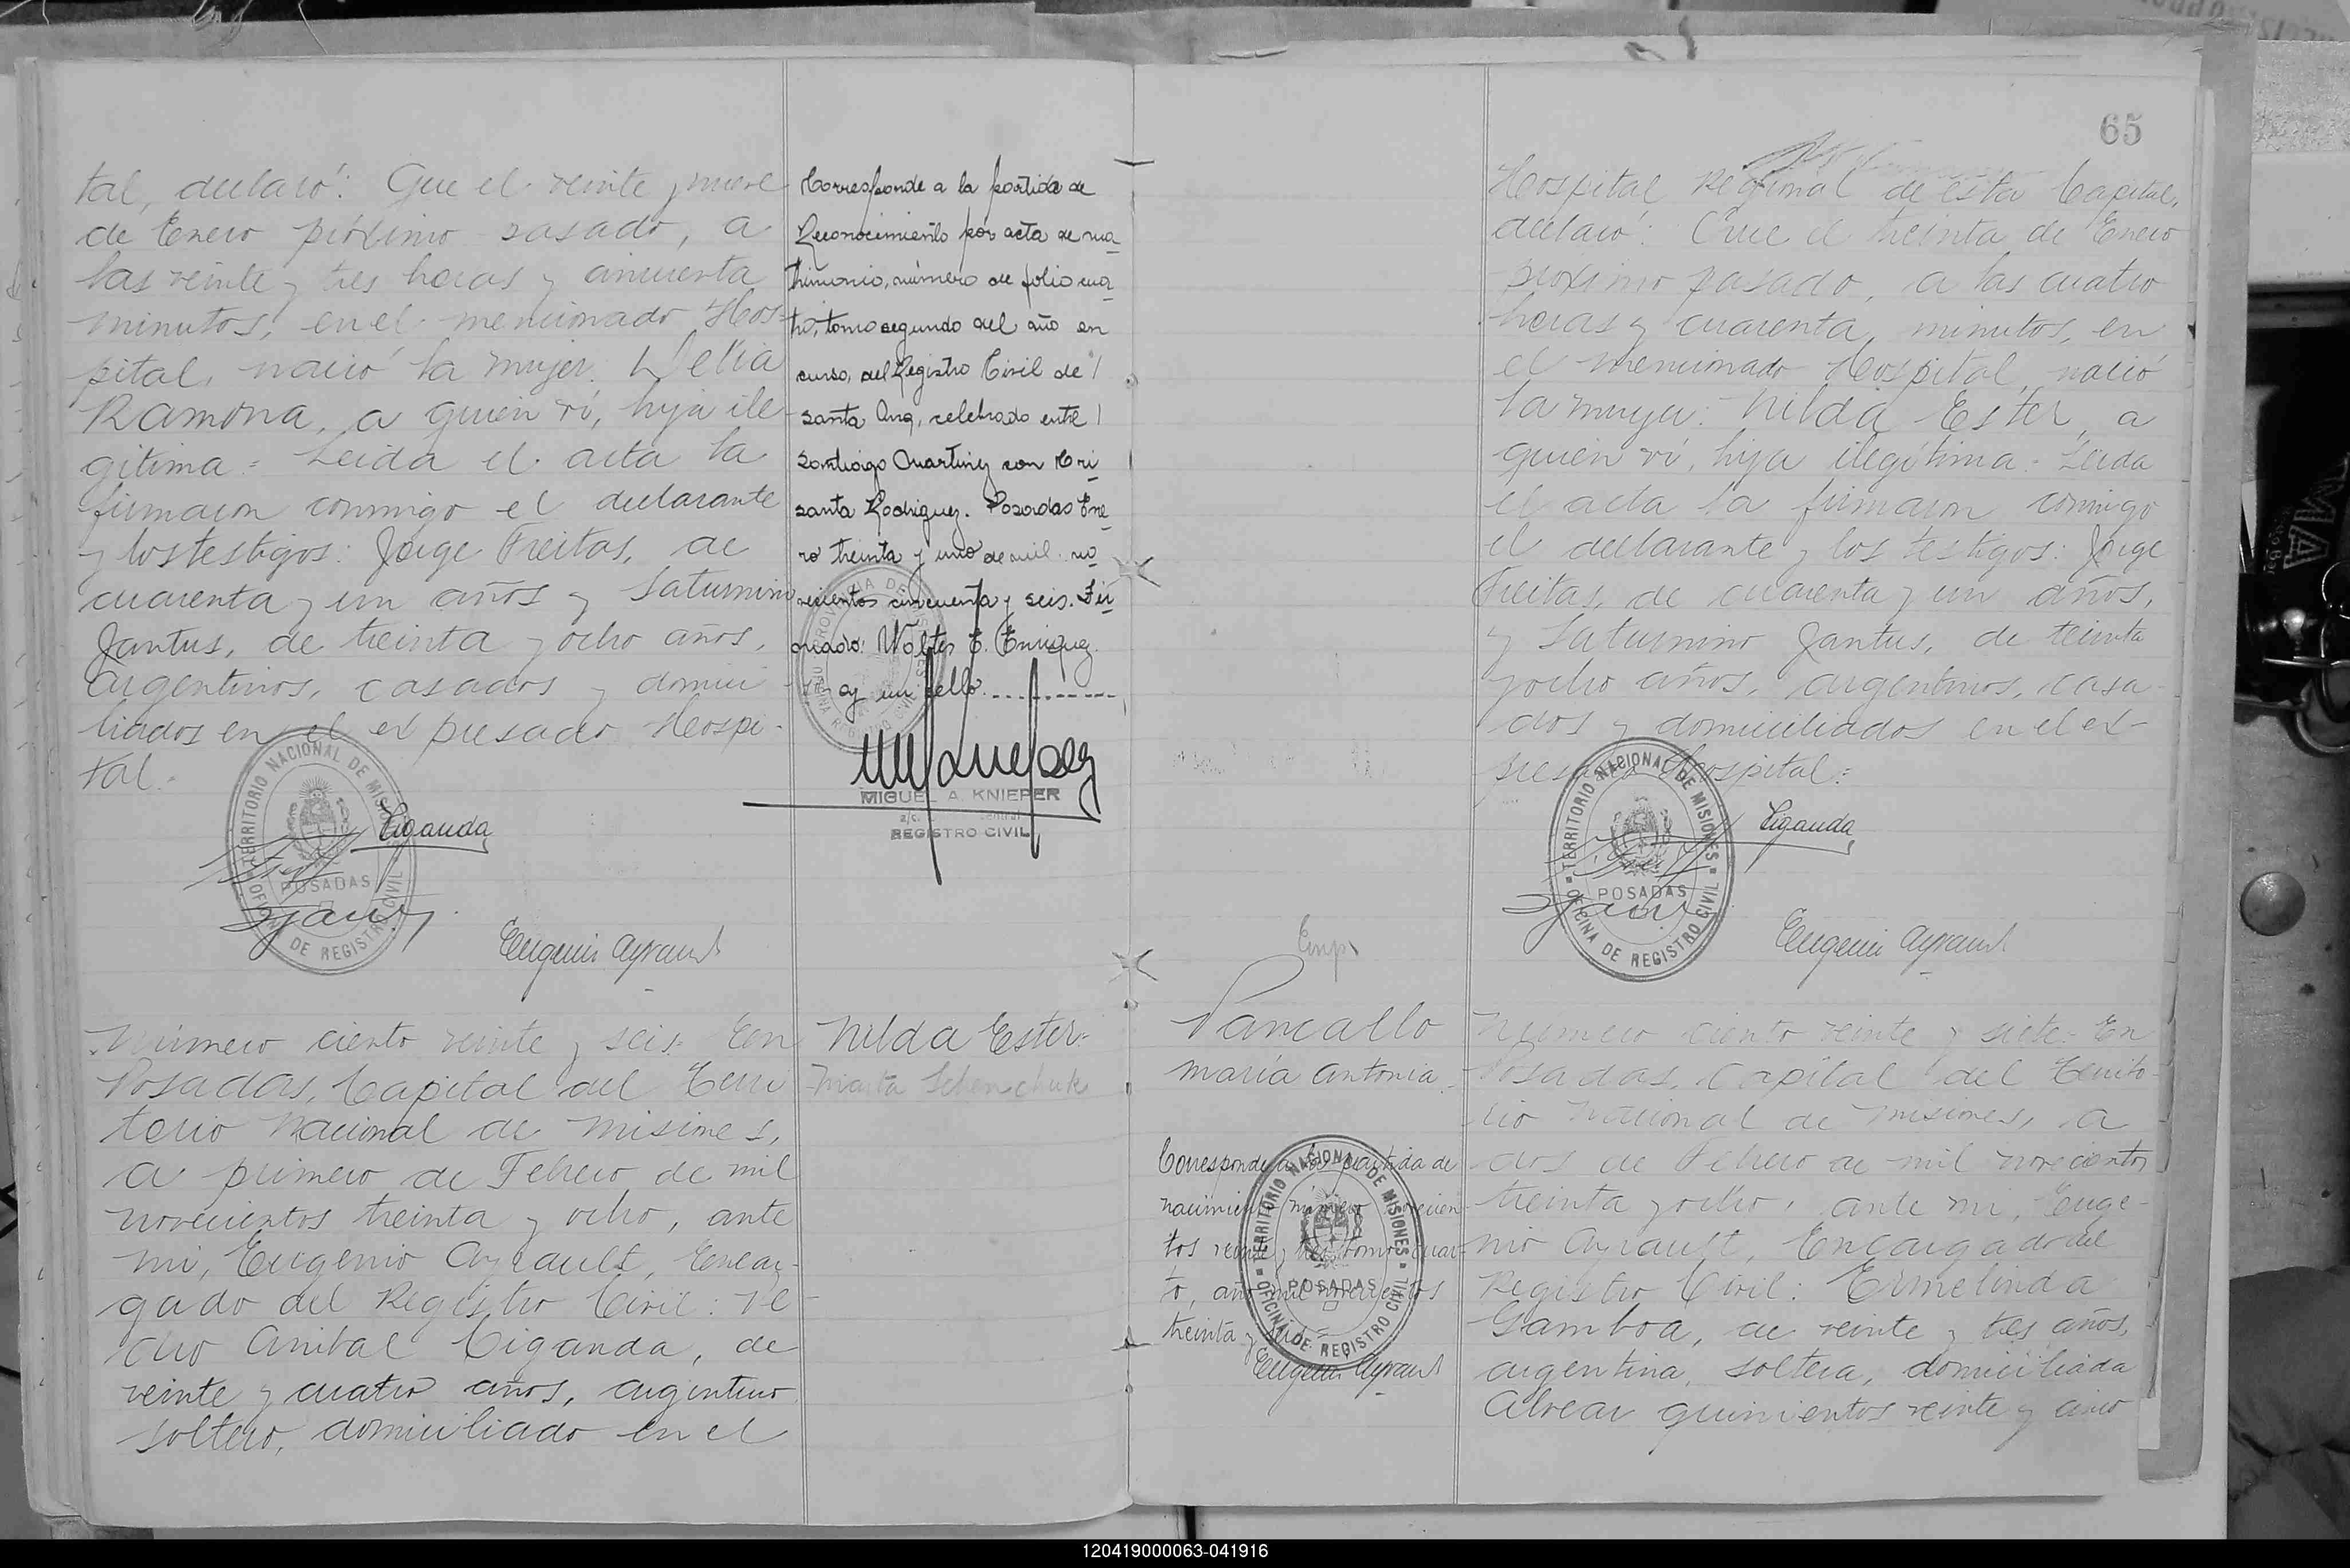 tal, declaró: Que el veinte y nueve
de Enero próximo pasado, a
las veinte y tres horas y cincuenta
minutos, en el mencionado Hos-
pital, nació la mujer: Delia
Ramona, a quien ví, hija ile-
gítima = Leida el acta la
firmaron conmigo el declarante
y los testigos: Jorge Freitas, de
cuarenta y un años y Saturnino
Jantus, de treinta y ocho años,
argentinos, casados y domici-
liados en el expresado Hospi-
tal.-
Ciganda
Eugenio Ayrault
TERRITORIO NACIONAL DE MISIONES
POSADAS
OFICINA DE REGISTRO CIVIL
Corresponde a la partida de
Reconocimiento por acta de ma-
trimonio, número de folio cua-
tro, tomo segundo del año en
curso, del Registro Civil de
Santa Ana, celebrado entre
Santiago Martinez con Cri-
santa Rodriguez. Posadas Ene-
ro treinta y uno de mil no-
vecientos cincuenta y seis. Fir-
mado: Walter E. Enriquez.
Hay un sello.
MIGUEL A. KNIEPER
REGISTRO CIVIL
Número ciento veinte y seis. En
Posadas, Capital del Terri
torio Nacional de Misiones,
a primero de Febrero de mil
novecientos treinta y ocho, ante
mi, Eugenio Ayrault, Encar-
gado del Registro Civil: Pe-
dro Anibal Ciganda, de
veinte y cuatro años, argentino
soltero, domiciliado en el
Nilda Ester.-
Marta Schenchuk
65
Hospital Regional de esta Capital,
declaró: Que el treinta de Enero
próximo pasado, a las cuatro
horas y cuarenta minutos, en
el mencionado Hospital, nació
la mujer: Nilda Ester, a
quien ví, hija ilegítima.- Leida
el acta la firmaron conmigo
el declarante y los testigos: Jorge
Freitas, de cuarenta y un años,
y Saturnino Jantus, de treinta
y ocho años, argentinos, casa-
dos y domiciliados en el ex-
presado Hospital:
Ciganda
Eugenio Ayrault
TERRITORIO NACIONAL DE MISIONES
POSADAS
OFICINA DE REGISTRO CIVIL
Pancallo
María Antonia.
Corresponde a la partida de
nacimiento número novecien-
tos veinte y tres tomo cuar-
to, año mil novecientos
treinta y
Eugenio Ayrault
TERRITORIO NACIONAL DE MISIONES
POSADAS
OFICINA DE REGISTRO CIVIL
Número ciento veinte y siete.- En
Posadas, Capital del Territo-
rio Nacional de Misiones, a
dos de Febrero de mil novecientos
treinta y ocho, ante mi, Euge-
nio Ayrault, Encargado del
Registro Civil: Ermelinda
Gamboa, de veinte y tres años,
argentina, soltera, domiciliada
Alvear quinientos veinte y cinco
120419000063-041916